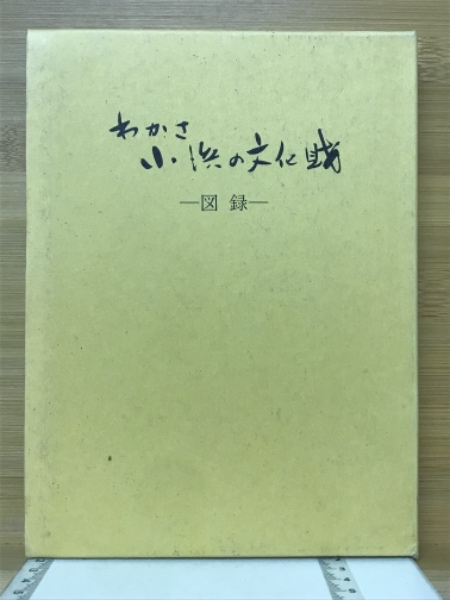 わかさ
小浜の文化財
―図 録―